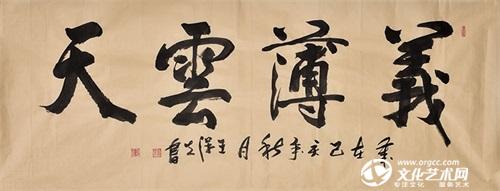 義薄雲天
在己亥年秋月王書
www.orgcc.com
文化艺术网
专注文化 服务艺术